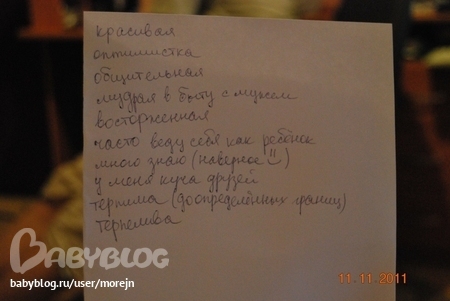 красивая
оптимистка
общительная
мудрая в быту с мужем
восторженная
часто веду себя как ребёнок
много знаю (наверное)
у меня куча друзей
терпима (до определённых границ)
терпелива
BABYBLOG
babyblog.ru/user/morejn
11-11-2011